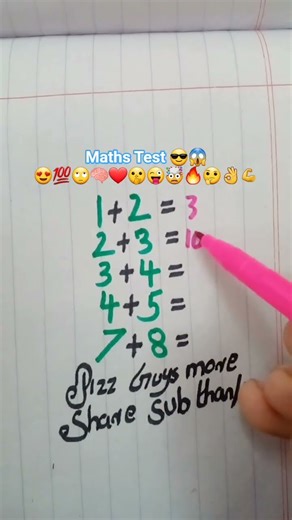 Maths Test 😎😱
😍💯🙄🧠❤️🤫😜🤯🔥🤔👌💪
1+2=3
2+3=10
3+4=
4+5=
7+8=
Plzz Guys more
Share Sub than